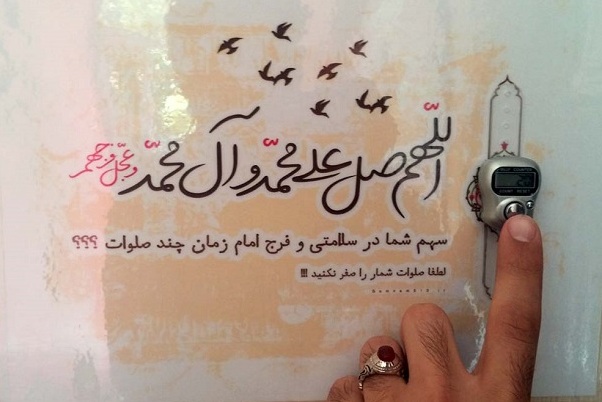 اللّهم صل علی محمّد و آل محمّد وعجّل فرجهم
سهم شما در سلامتی و فرج امام زمان چند صلوات ؟؟؟
لطفا صلوات شمار را صفر نکنید !!!